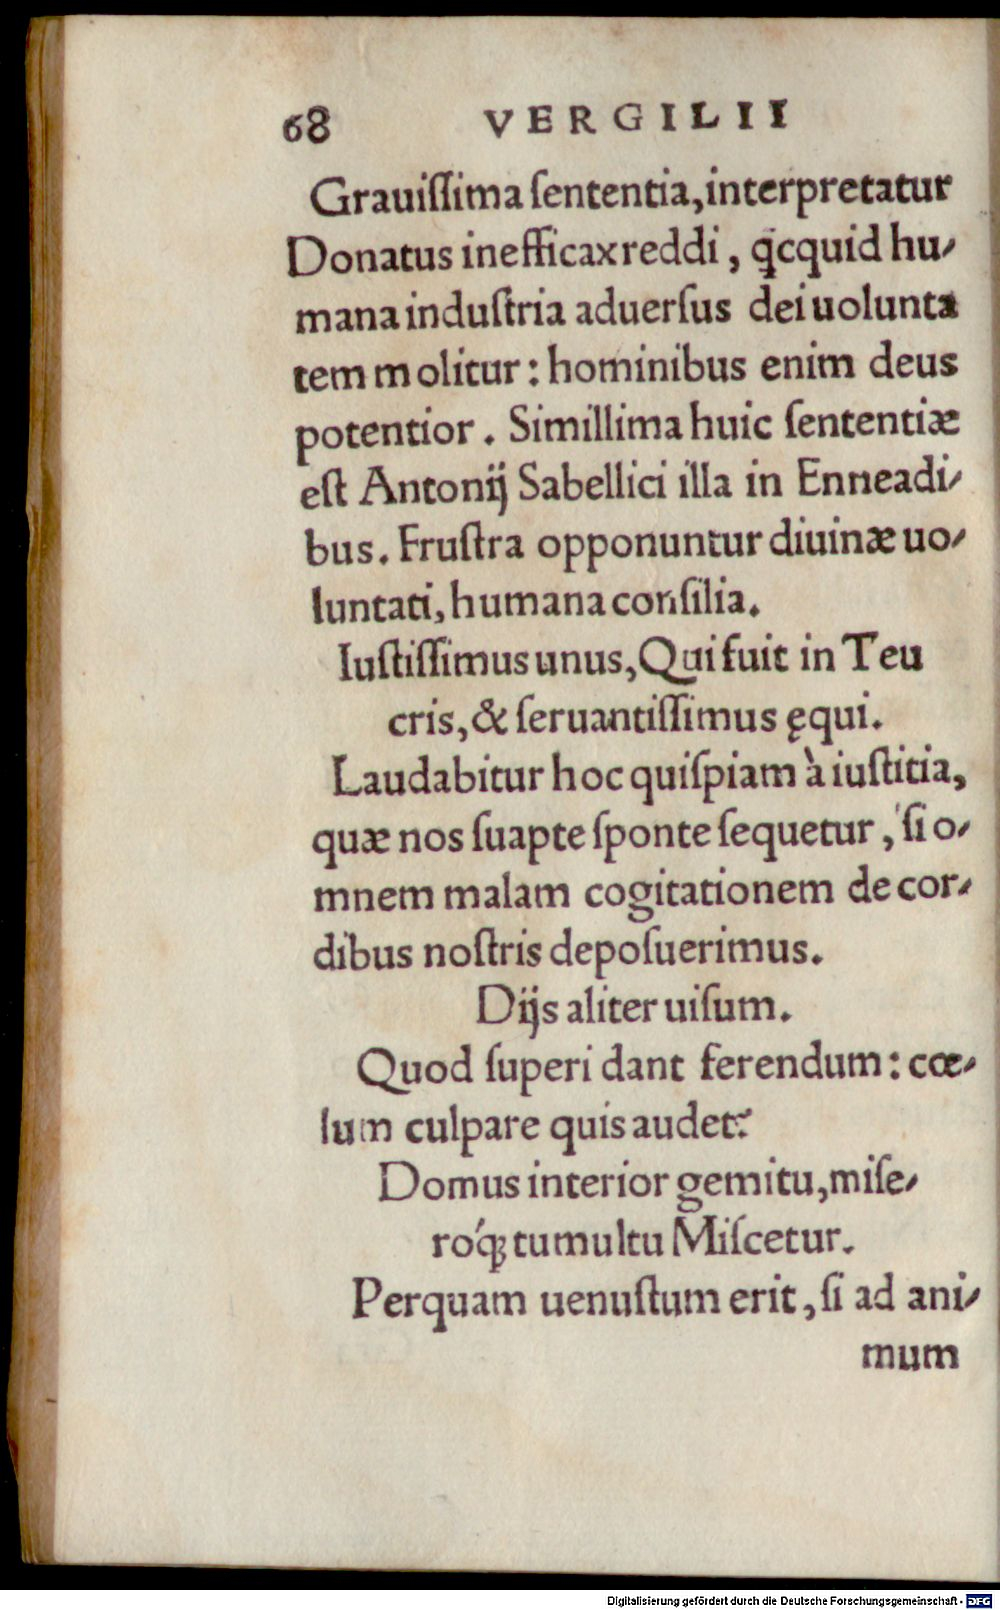 68 VERGILII
Grauiſſima ſententia, interpretatur
Donatus inefficax reddi, q̃cquid hu-
mana induſtria aduerſus dei uolunta
tem molitur: hominibus enim deus
potentior. Simillima huic ſententiæ
eſt Antonij Sabellici illa in Enneadi-
bus. Fruſtra opponuntur diuinæ uo-
luntati, humana conſilia.
Iuſtiſſimus unus, Qui fuit in Teu
cris, & ſeruantiſſimus ęqui.
Laudabitur hoc quiſpiam à iuſtitia,
quæ nos ſuapte ſponte ſequetur, ſi o-
mnem malam cogitationem de cor-
dibus noſtris depoſuerimus.
Dijs aliter uiſum.
Quod ſuperi dant ferendum: cœ-
lum culpare quis audet?
Domus interior gemitu, miſe-
róq; tumultu Miſcetur.
Perquam uenuſtum erit, ſi ad ani-
mum
Digitalisierung gefördert durch die Deutsche Forschungsgemeinschaft - DFG